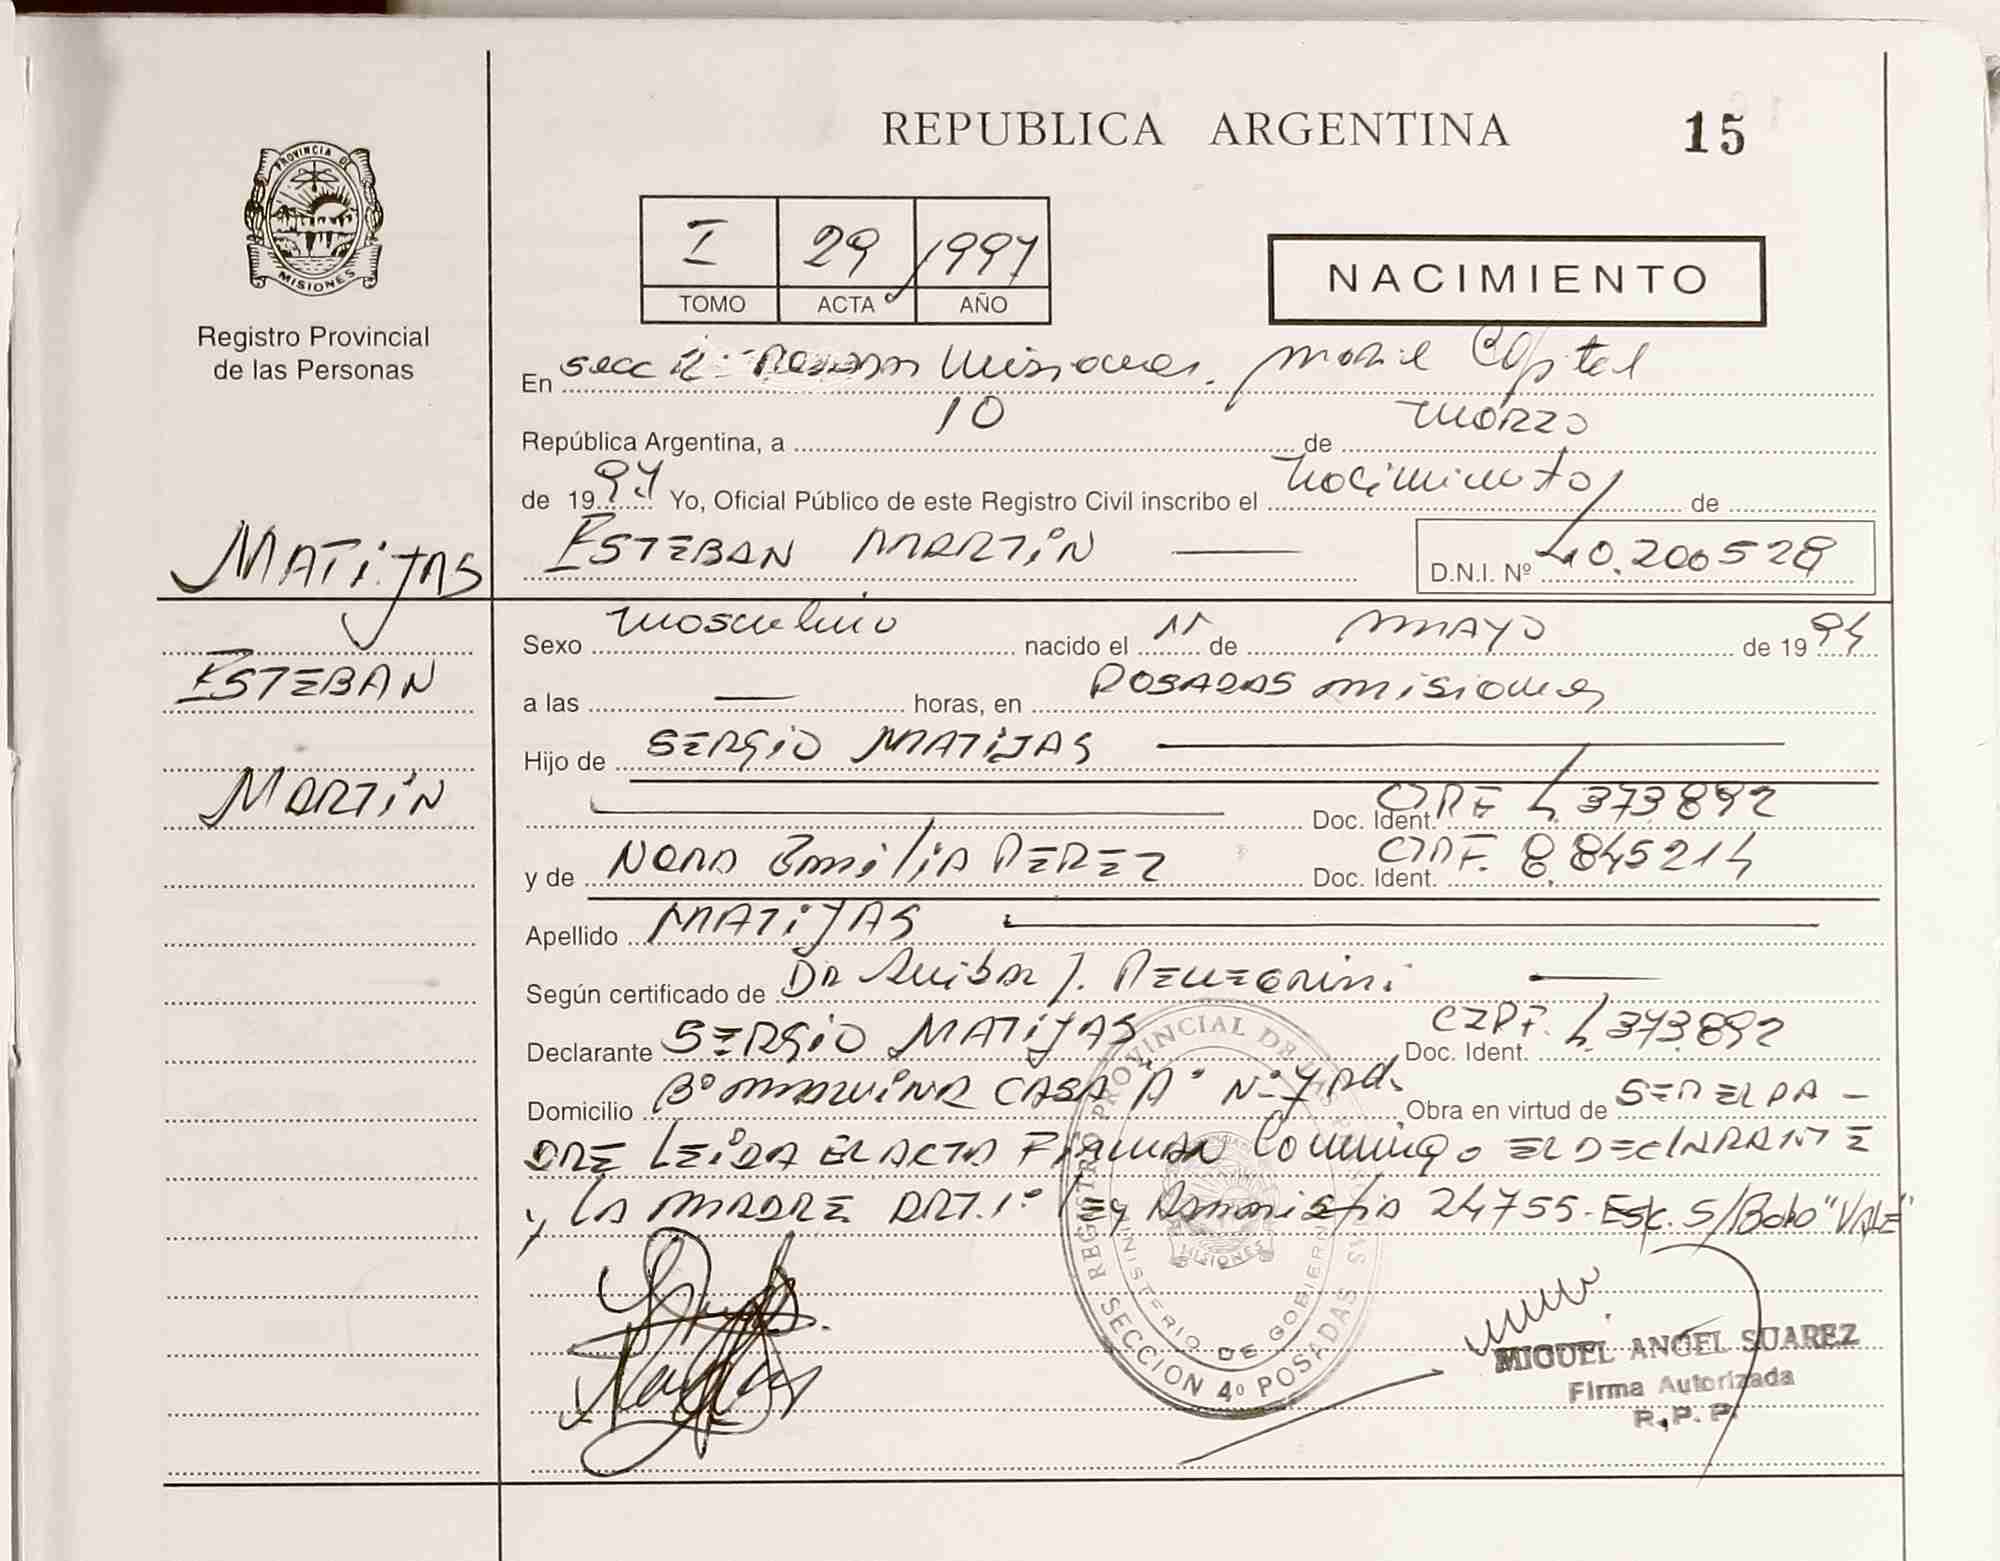 REPUBLICA ARGENTINA
15
PROVINCIA DE
MISIONES
Registro Provincial
de las Personas
I 29 1997
TOMO ACTA AÑO
NACIMIENTO
En secc Misiones. Capital
República Argentina, a 10 de marzo
de 1997 Yo, Oficial Público de este Registro Civil inscribo el nacimiento de
ESTEBAN MARTIN
D.N.I. Nº 40.200528
MATIJAS
ESTEBAN
MARTIN
Sexo masculino nacido el 11 de MAYO de 1994
a las — horas, en POSADAS misiones
Hijo de SERGIO MATIJAS
Doc. Ident. 4.373.892
y de NORA Emilia PEREZ Doc. Ident. 8.845214
Apellido MATIJAS
Según certificado de Dr Anibal J.
Declarante SERGIO MATIJAS Doc. Ident. 4.373.892
Domicilio Bº CASA "A" Nº 7 Obra en virtud de SER EL PA-
DRE LEIDA EL ACTA FIRMAN Conmigo EL DECLARANTE
y LA MADRE ART. 1º Ley 24755. Esk. S/Bdo "VALE"
REGISTRO PROVINCIAL DE LAS PERSONAS
MINISTERIO DE GOBIERNO
MISIONES
SECCION 4º POSADAS
MIGUEL ANGEL SUAREZ
Firma Autorizada
R.P.P.